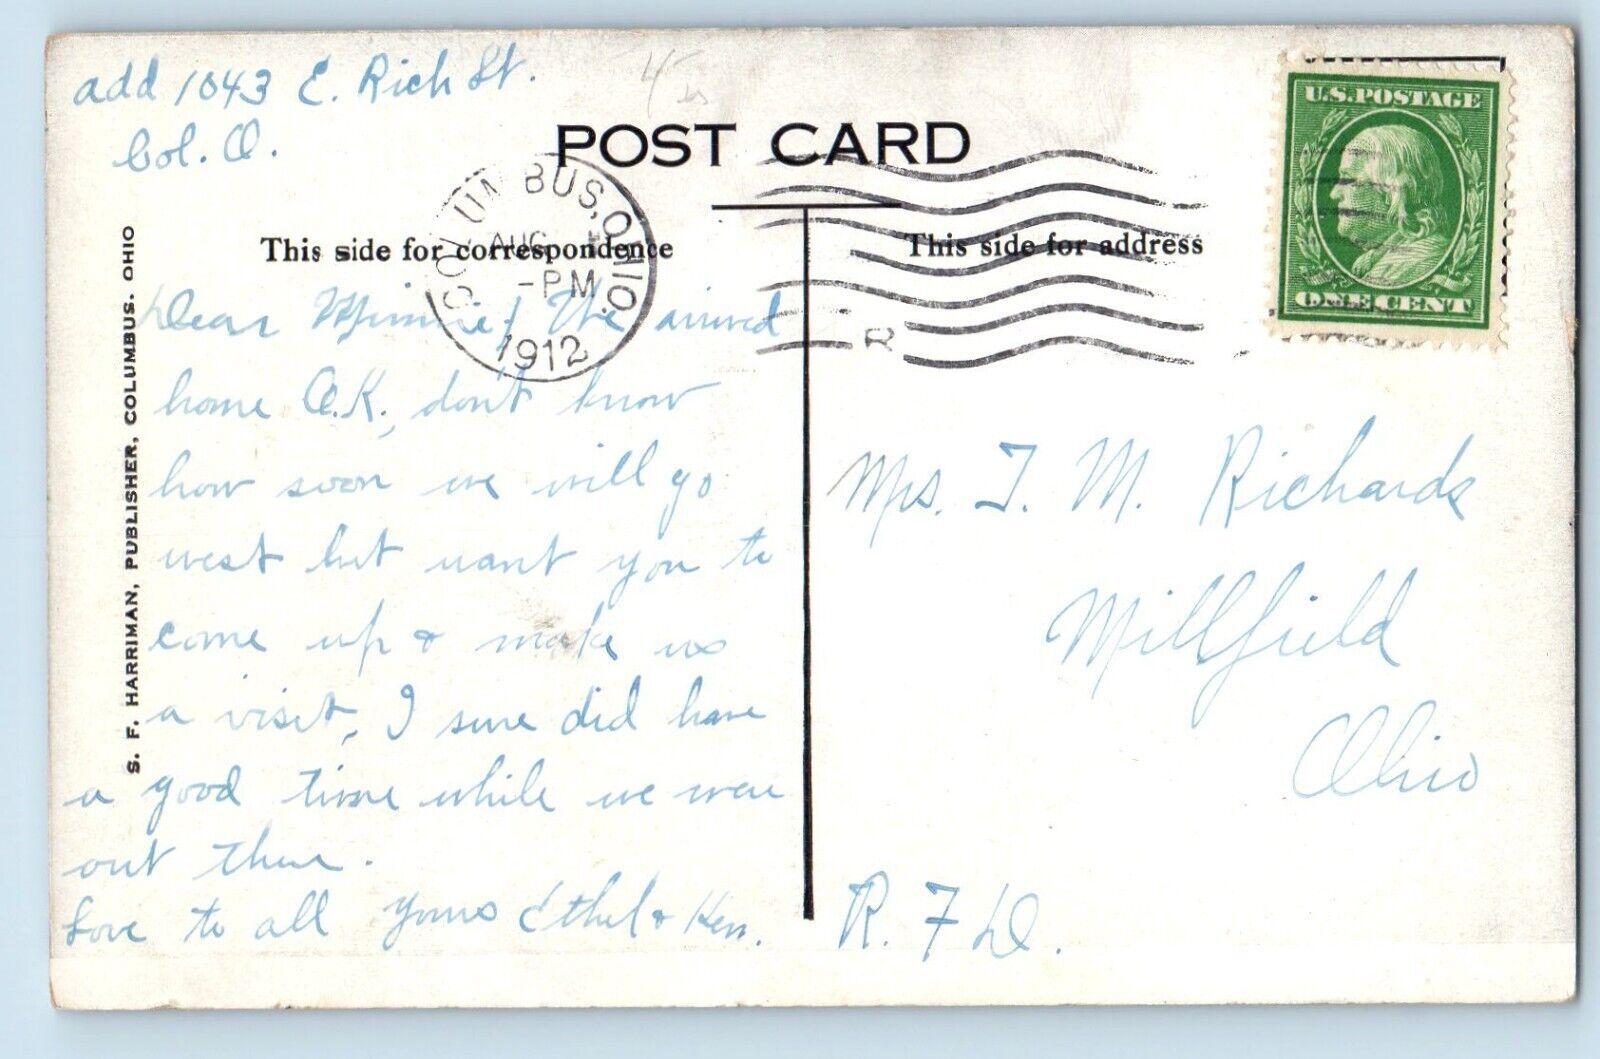 add 1043 E. Rich St.
Col. O.
POST CARD
COLUMBUS, OHIO.
AUG
-PM
1912
This side for correspondence
This side for address
U.S. POSTAGE
ONE CENT
R
S. F. HARRIMAN, PUBLISHER, COLUMBUS. OHIO
Dear Minnie; We arrived
home O.K., don't know
how soon we will go
west but want you to
come up & make us
a visit, I sure did have
a good time while we were
out there.
Love to all Yours Ethel & Ken.
Mrs. T. M. Richards
Millfield
Ohio
R. F. D.